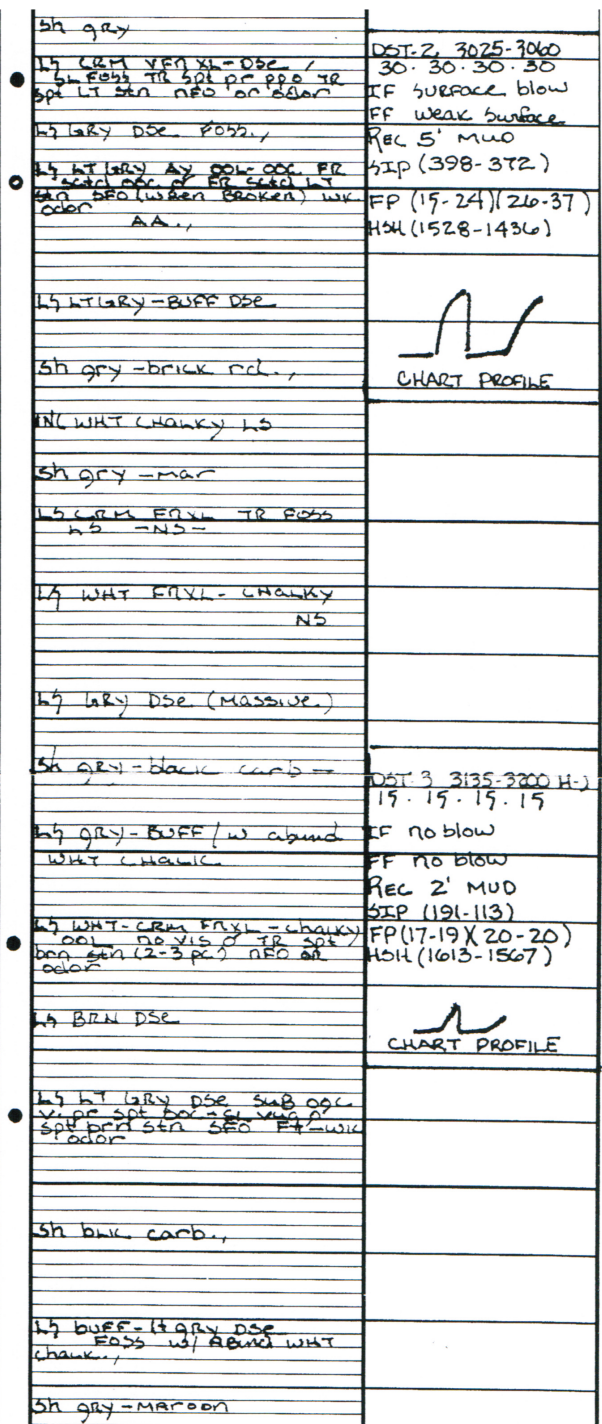 Sh gry
LS CRM VFNXL-DSe /
SL FOSS TR spt pr ppo TR
spt LT Stn NFO or odor
LS GRY DSE FOSS.,
LS LT GRY AY OOL-OOC FR
sctd ooc ø FR sctd LT
stn SFO (WHEN BROKEN) WK
odor
AA.,
LS LT GRY-BUFF DSe
Sh gry-brick rd.,
INC WHT CHALKY LS
Sh gry-mar
LS CRM FNXL TR FOSS
LS -NS-
LS WHT FNXL-CHALKY
NS
LS GRY DSe (MASSIVE.)
Sh gry-black carb-
LS gry-BUFF / w abund
WHT CHALK
LS WHT-CRM FNXL-chalky
OOL no VIS ø TR spt
brn stn (2-3 pc) NFO or
odor
LS BRN DSE
LS LT GRY DSE SUB OOC
V. pr spt ooc-SL vug ø
spt brn stn SFO FT-WK
odor
Sh blk carb.,
LS buff-lt gry DSe
FOSS w/ Abund WHT
chalk.,
Sh gry-MAROON
DST-2 3025-3060
30-30-30-30
IF SURFACE blow
FF Weak Surface
REC 5' MUD
SIP (398-372)
FP (15-24)(26-37)
HSH (1528-1436)
CHART PROFILE
DST-3 3135-3200 H-J
15-15-15-15
IF no blow
FF no blow
REC 2' MUD
SIP (191-113)
FP (17-19)(20-20)
HSH (1613-1567)
CHART PROFILE